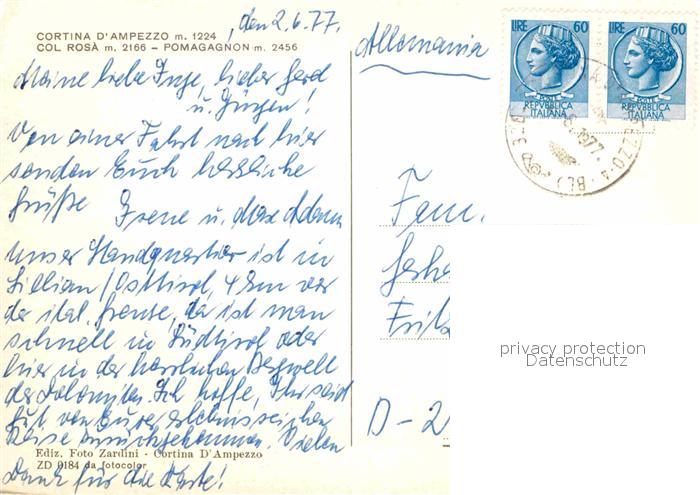 , den 2.6.77.
CORTINA D'AMPEZZO m. 1224
COL ROSÀ m. 2166 – POMAGAGNON m. 2456
Meine liebe Inge, lieber Gerd
u. Jürgen!
Von einer Fahrt nach hier
senden Euch herzliche
Grüße Irene u. Max Adam
Unser Standquartier ist in
Sillian/Osttirol, 4 km vor
der ital. Grenze, da ist man
schnell in Südtirol oder
hier in der herrlichen Bergwelt
der Dolomiten. Ich hoffe, Ihr seid
gut von Eurer erlebnisreichen
Reise zurückgekommen. Vielen
Dank für die Karte!
Ediz. Foto Zardini - Cortina D'Ampezzo
ZD 9184 da fotocolor
Allemania
LIRE 60
POSTE
REPVBBLICA
ITALIANA
LIRE 60
POSTE
REPVBBLICA
ITALIANA
1977
BL)
Fam.
Fritz
D-2
privacy protection
Datenschutz